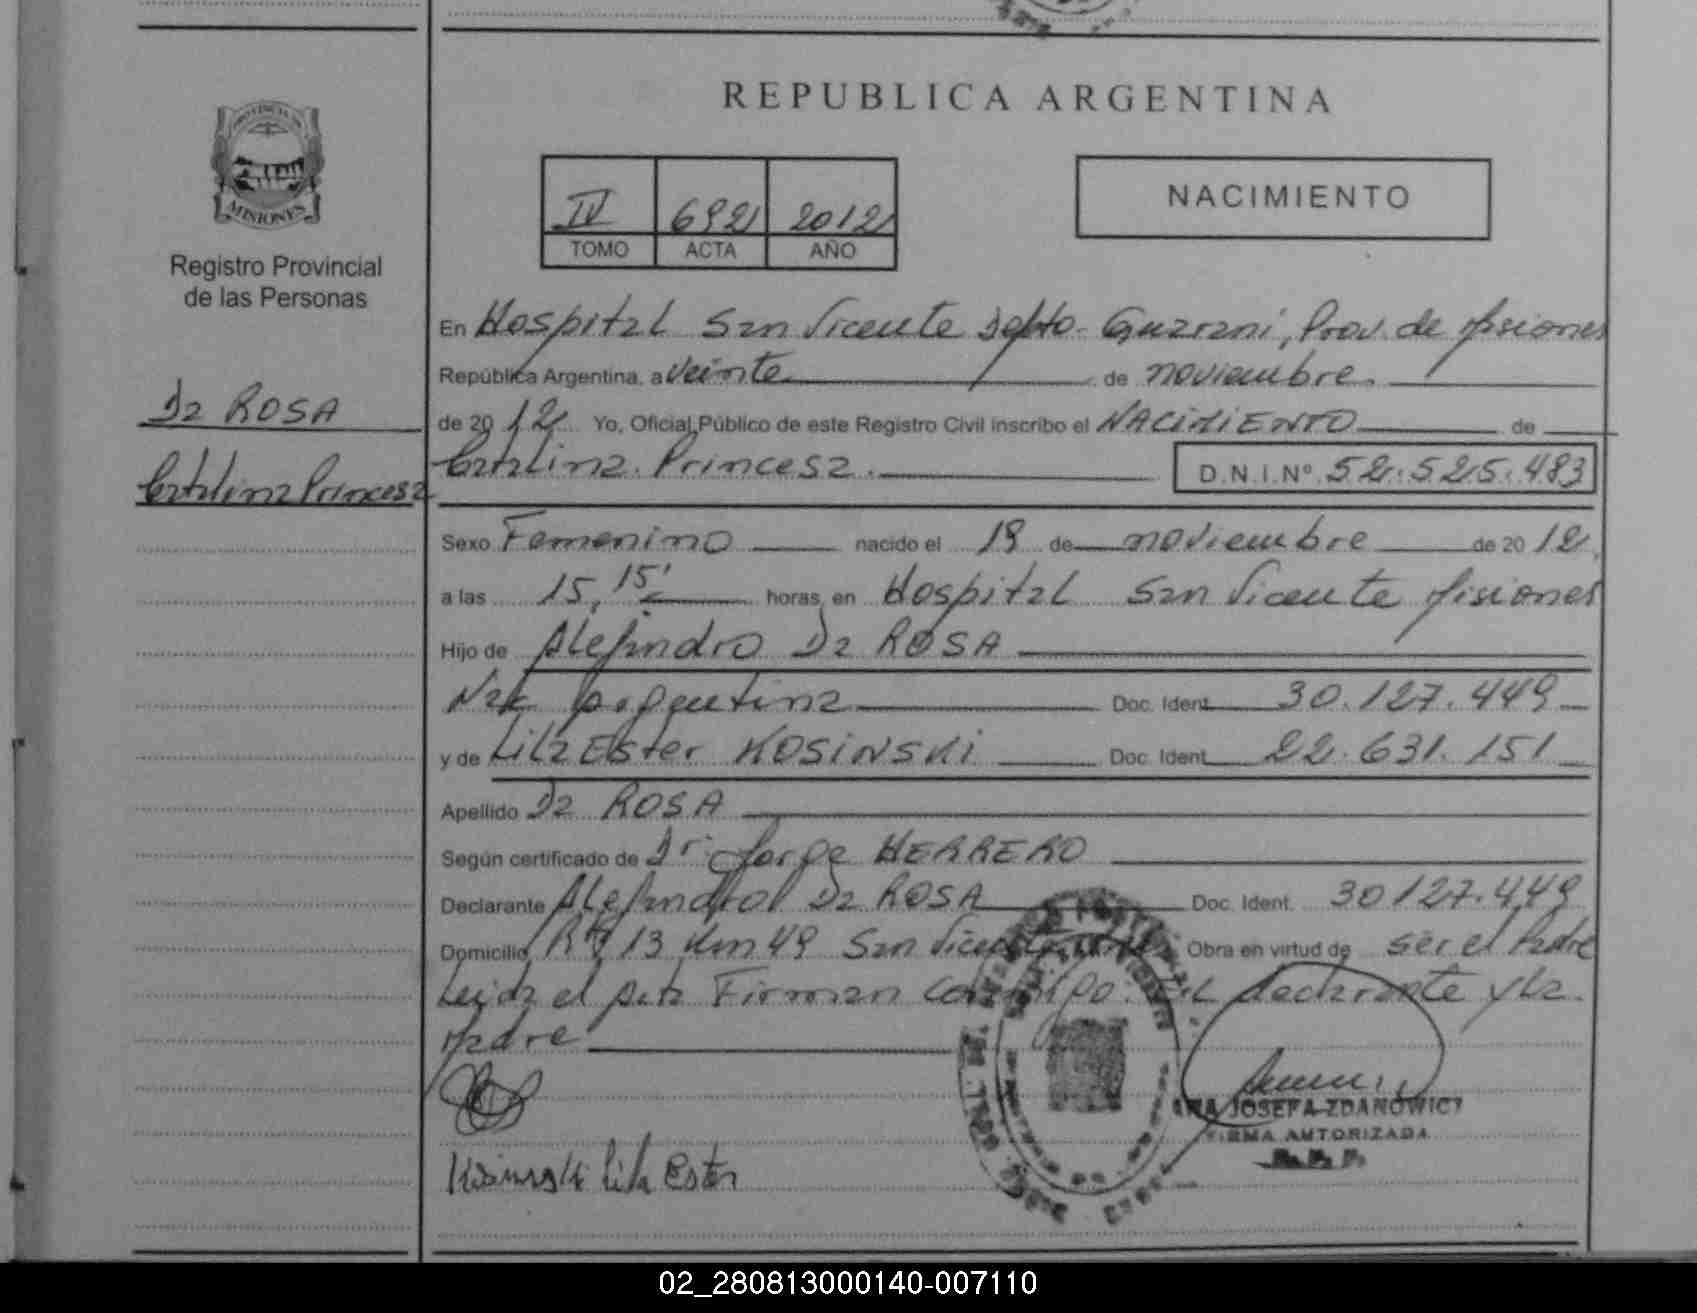 REPUBLICA ARGENTINA
PROVINCIA DE
MISIONES
Registro Provincial
de las Personas
IV 692 2012
TOMO ACTA AÑO
NACIMIENTO
Da ROSA
Catalina Princesa
En Hospital San Vicente Depto. Guarani, Prov. de Misiones
República Argentina, a veinte de noviembre.
de 2012 Yo, Oficial Público de este Registro Civil inscribo el NACIMIENTO de
Catalina. Princesa. D.N.I.Nº 52.525.483
Sexo Femenino nacido el 19 de noviembre de 2012.
a las 15,15' horas, en Hospital San Vicente Misiones
Hijo de Alejandro Da ROSA
Nac Argentina Doc. Ident. 30.127.449
y de Lila Ester KOSINSKI Doc. Ident. 22.631.151
Apellido Da ROSA
Según certificado de Dr. Jorge HERRERO
Declarante Alejandro Da ROSA Doc. Ident. 30127.449
Domicilio 13 Km 49 San Vicente Obra en virtud de ser el Padre
Leida el Acta Firman conmigo. El declarante y La.
Madre
Kosinski Lila Ester
ANA JOSEFA ZDANOWICZ
FIRMA AUTORIZADA
02_280813000140-007110